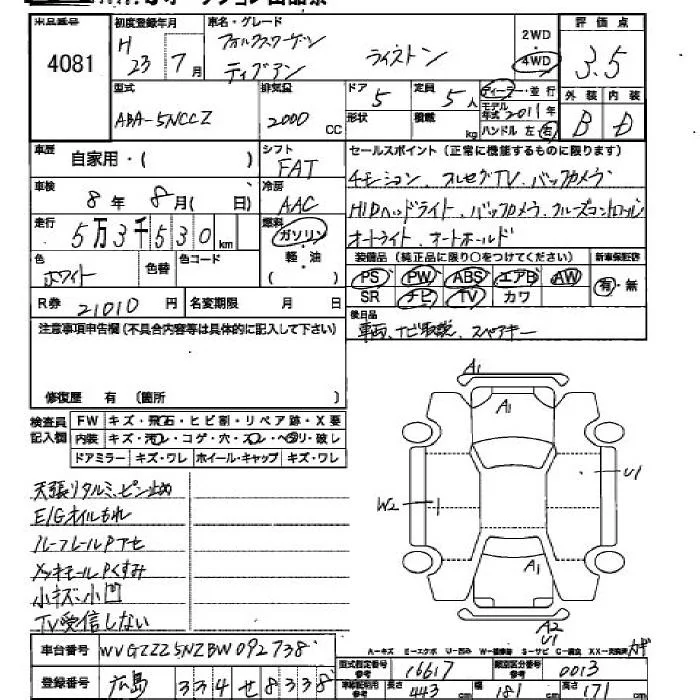 出品番号 初度登録年月 車名・グレード 評価点
4081 H 23年7月 フォルクスワーゲン ティグアン ライストン 2WD 4WD 3.5
型式 排気量 ドア 定員 ディーラー・並行 外装 内装
ABA-5NCCZ 2000 CC 5 5人 モデル年式 2011年 B D
形状 積載 kg ハンドル 左 右
車歴 シフト セールスポイント(正常に機能するものに限ります)
自家用・( ) FAT 4モーション、フルセグTV、バックカメラ
車検 冷房
8年8月( 日) AAC HIDヘッドライト、バックカメラ、クルーズコントロール
走行 燃料
5万3千530km ガソリン オートライト、オートホールド
色 色替 色コード 軽・油 装備品(純正品に限り○をつけてください) 新車保証書
ホワイト ( ) PS PW ABS エアB AW 有・無
R券 21010円 名変期限 月 日 SR ナビ TV カワ
注意事項申告欄(不具合内容等は具体的に記入して下さい) 後日品
車両、ナビ取説、スペアキー
修復歴 有 (箇所 )
検査員記入欄 FW キズ・飛石・ヒビ割・リペア跡・X要
内装 キズ・汚レ・コゲ・穴・スレ・ヘタリ・破レ
ドアミラー キズ・ワレ ホイール・キャップ キズ・ワレ
A1
A1
U1
W2
A1
A2
U1
天張リタルミ、ピン止め
E/Gオイルもれ
ルーフレールPアセ
メッキモールPくすみ
小キズ、小凹
TV受信しない
A-キズ E-エクボ U-凹み W-補修跡 S-サビ C-腐食 XX-交換済
車台番号 WVGZZZ5NZBW092738
型式指定番号 参考 16617 類別区分番号 参考 0013
登録番号 広島 334 せ 8338
車検証明用 参考 長さ 443cm 幅 181cm 高さ 171cm